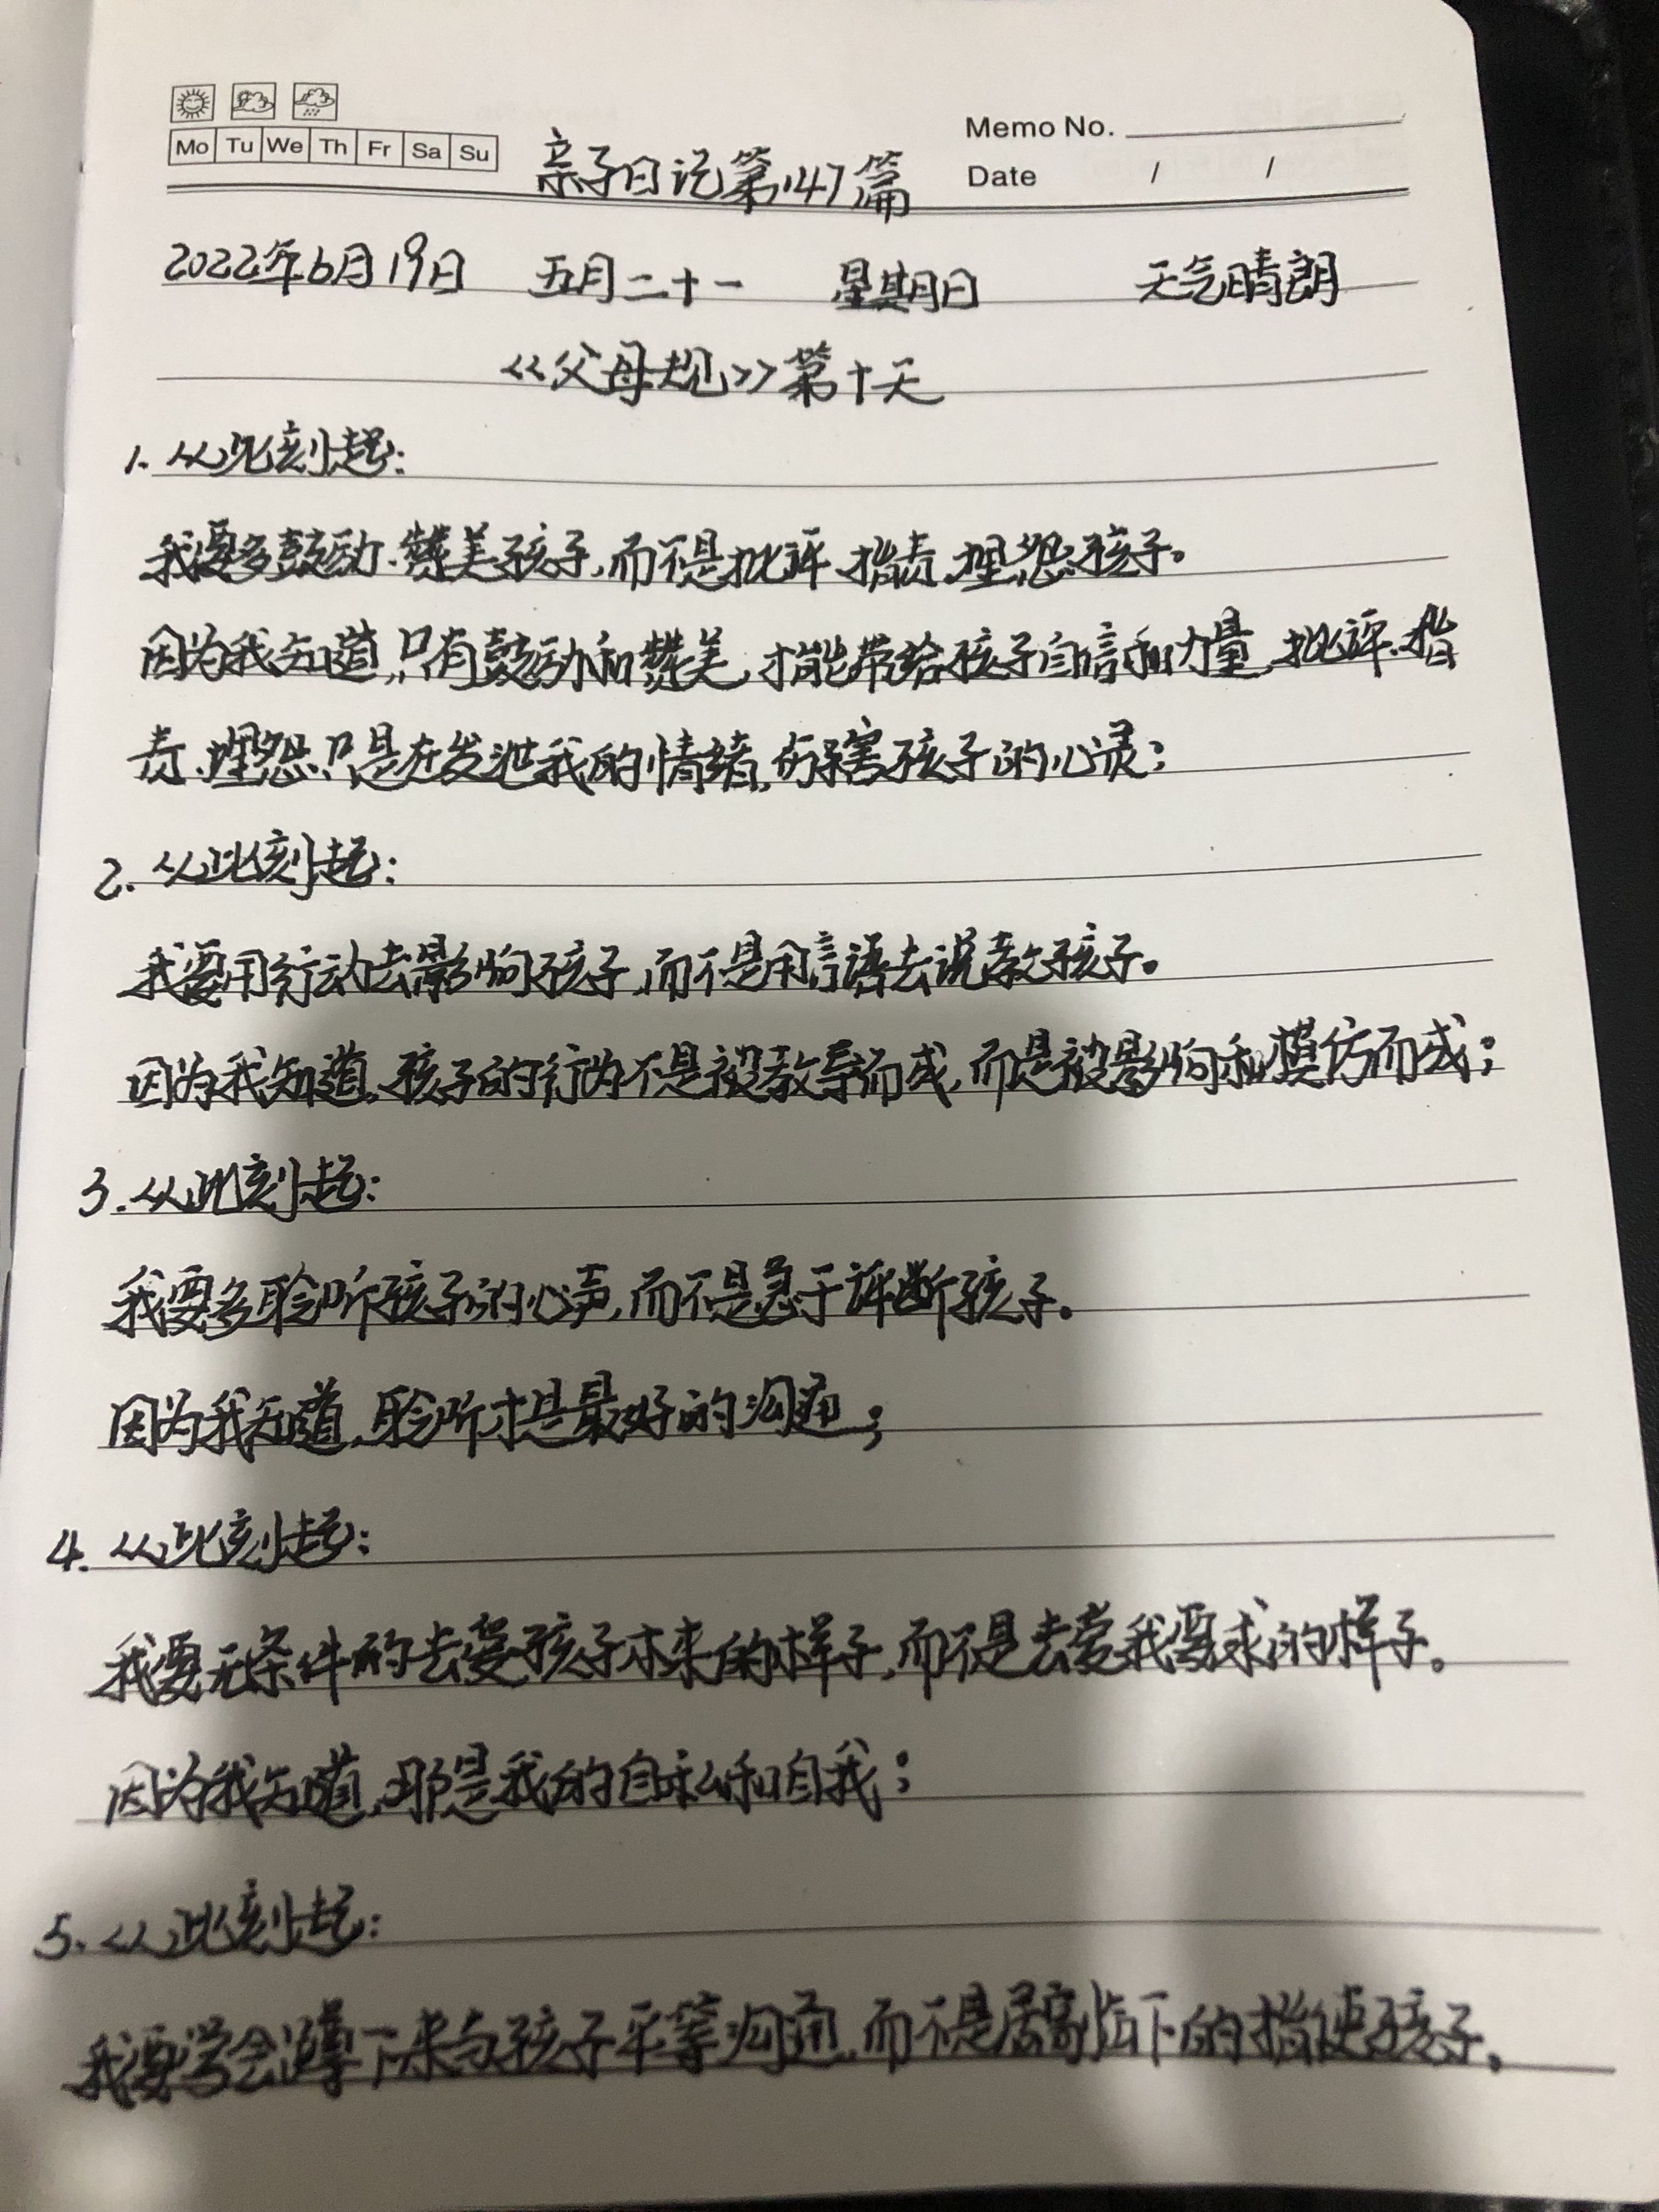 Mo Tu We Th Fr Sa Su
Memo No.
Date / /
亲子日记第147篇
2022年6月19日 五月二十一 星期日 天气晴朗
《父母规》第十天
1.从此刻起:
我要多鼓动.赞美孩子,而不是批评.指责.埋怨孩子。
因为我知道,只有鼓动和赞美,才能带给孩子自信和力量,批评.指
责.埋怨只是在发泄我的情绪,伤害孩子的心灵;
2.从此刻起:
我要用行动去影响孩子,而不是用言语去说教孩子。
因为我知道,孩子的行为不是被教导而成,而是被影响和模仿而成;
3.从此刻起:
我要多聆听孩子的心声,而不是急于评断孩子。
因为我知道,聆听才是最好的沟通;
4.从此刻起:
我要无条件的去爱孩子本来的样子,而不是去爱我要求的样子。
因为我知道,那是我的自私和自我;
5.从此刻起:
我要学会蹲下来与孩子平等沟通,而不是居高临下的指使孩子。